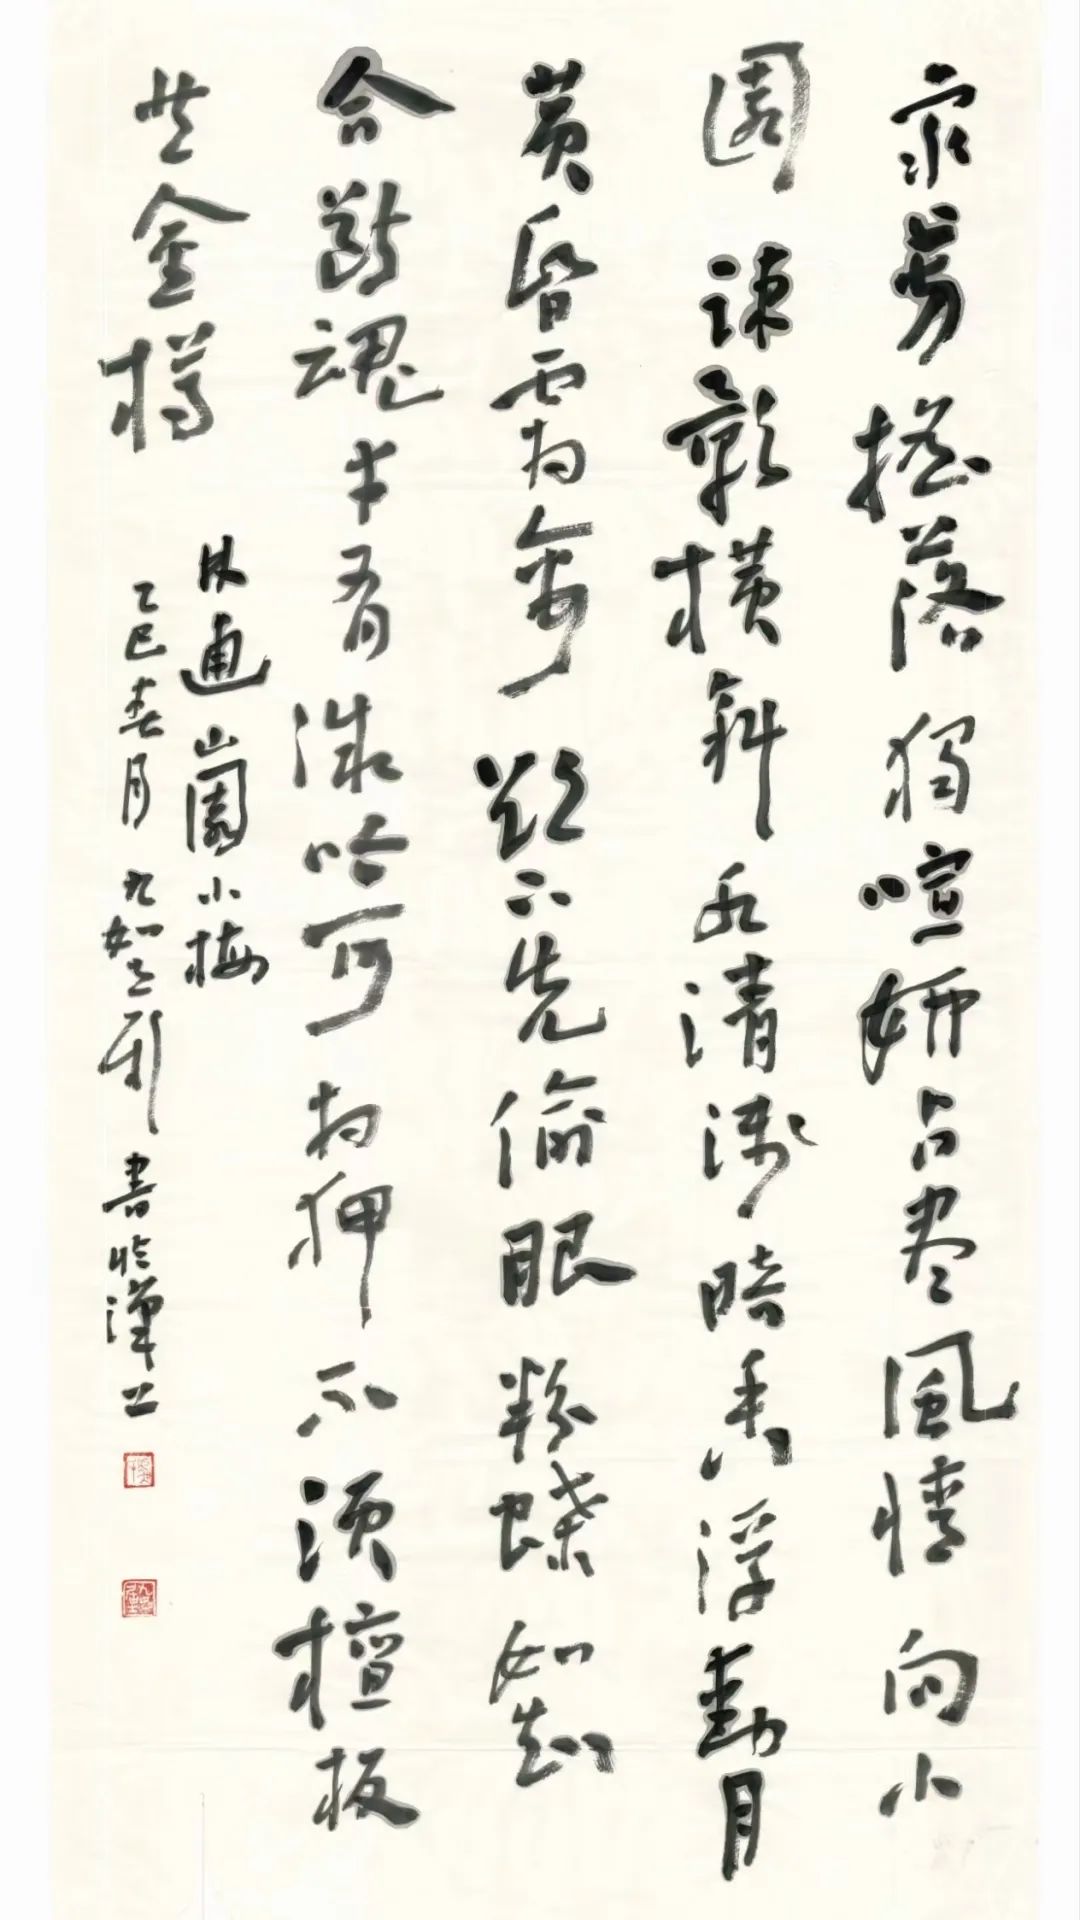 衆芳摇落獨喧妍占盡風情向小
園疎影横斜水清淺暗香浮動月
黄昏霜禽欲下先偷眼粉蝶如知
合斷魂幸有微吟可相狎不須檀板
共金樽
林逋山園小梅
乙巳春月九如書於漢上